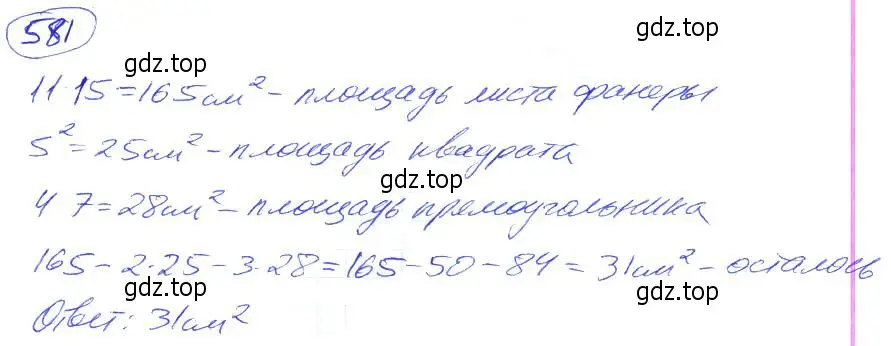 581
gdz.top
gdz.top
11·15=165см² - площадь листа фанеры
gdz.top
5²=25см² - площадь квадрата
gdz.top
4 7=28см² - площадь прямоугольника
165-2·25-3·28=165-50-84=31см² - осталось
gdz.top
gdz.top
Ответ: 31см²